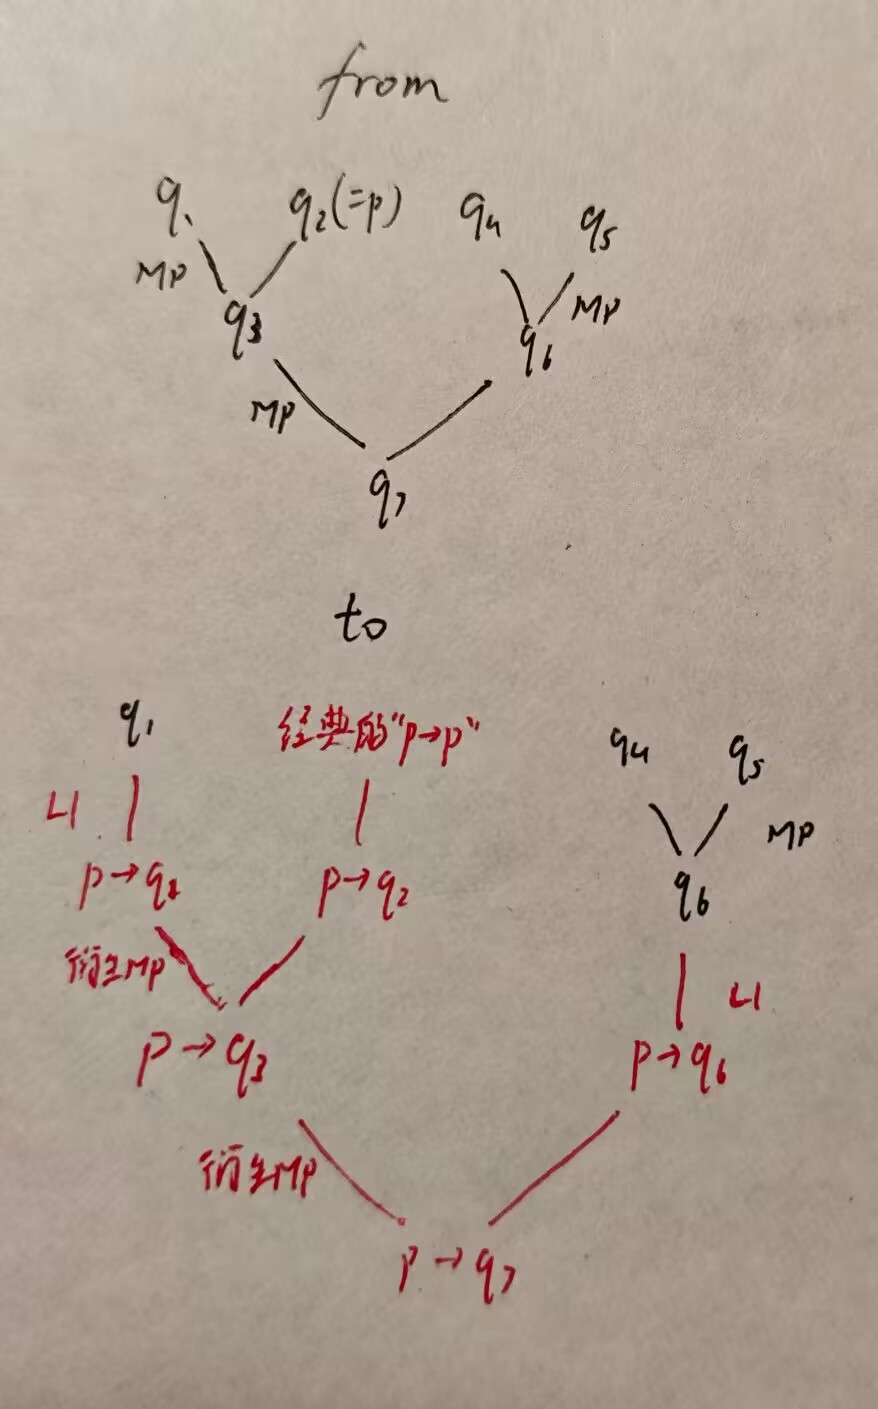 from
q₁ q₂(=p) q₄ q₅
MP MP
q₃ q₆
MP
q₇
to
q₁ 经典的"p→p" q₄ q₅
L1 MP
p→q₁ p→q₂ q₆
衍生MP L1
p→q₃ p→q₆
衍生MP
p→q₇